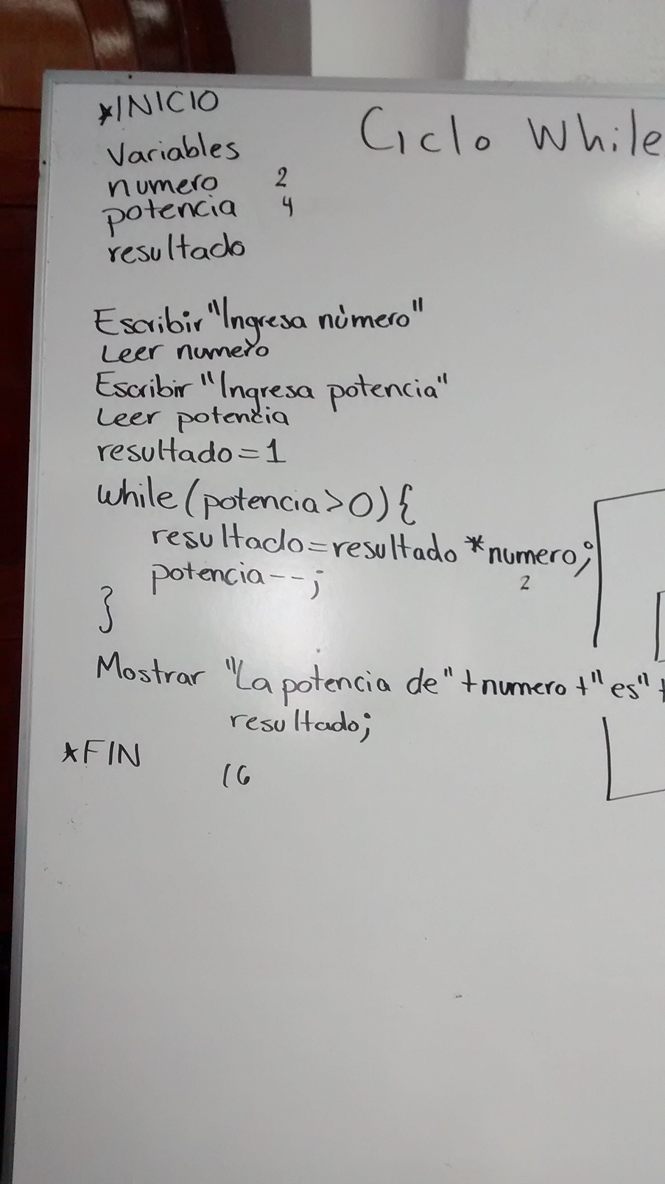 *INICIO
Ciclo While
Variables
numero 2
potencia 4
resultado
Escribir "Ingresa número"
Leer numero
Escribir "Ingresa potencia"
Leer potencia
resultado=1
while(potencia>0){
resultado=resultado*numero;
2
potencia--;
}
Mostrar "La potencia de"+numero+"es"+
resultado;
*FIN
16